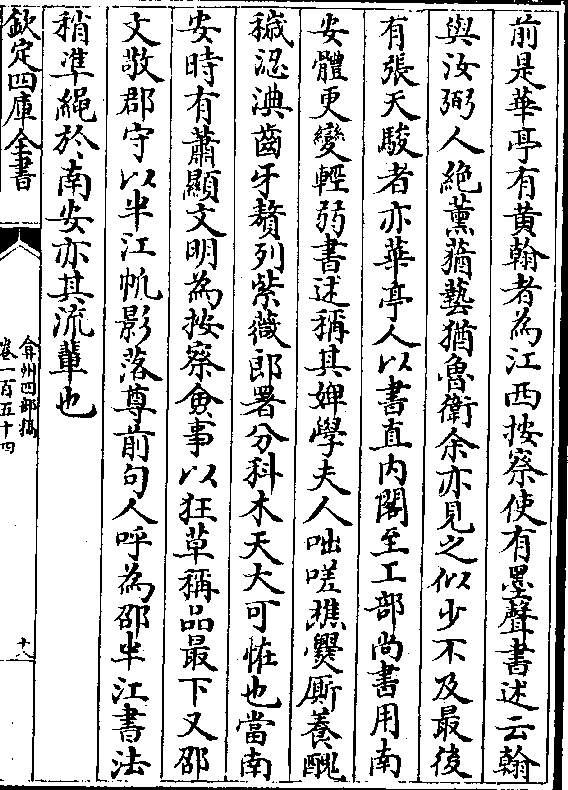 前是華亭有黄翰者為江西按察使有墨聲書述云翰
與汝弼人絶薰蕕藝猶魯衛余亦見之似少不及最後
有張天駿者亦華亭人以書直内閣至工部尚書用南
安體更變輕弱書述稱其婢學夫人咄嗟樵爨厮養醜
穢涊淟齒牙頳列紫薇郎署分科木天大可恠也當南
安時有蕭顯文明為按察僉事以狂草稱品最下又邵
文敬郡守以半江帆影落尊前句人呼為邵半江書法
稍準繩於南安亦其流輩也
欽定四庫全書
弇州四部稿
卷一百五十四
十八